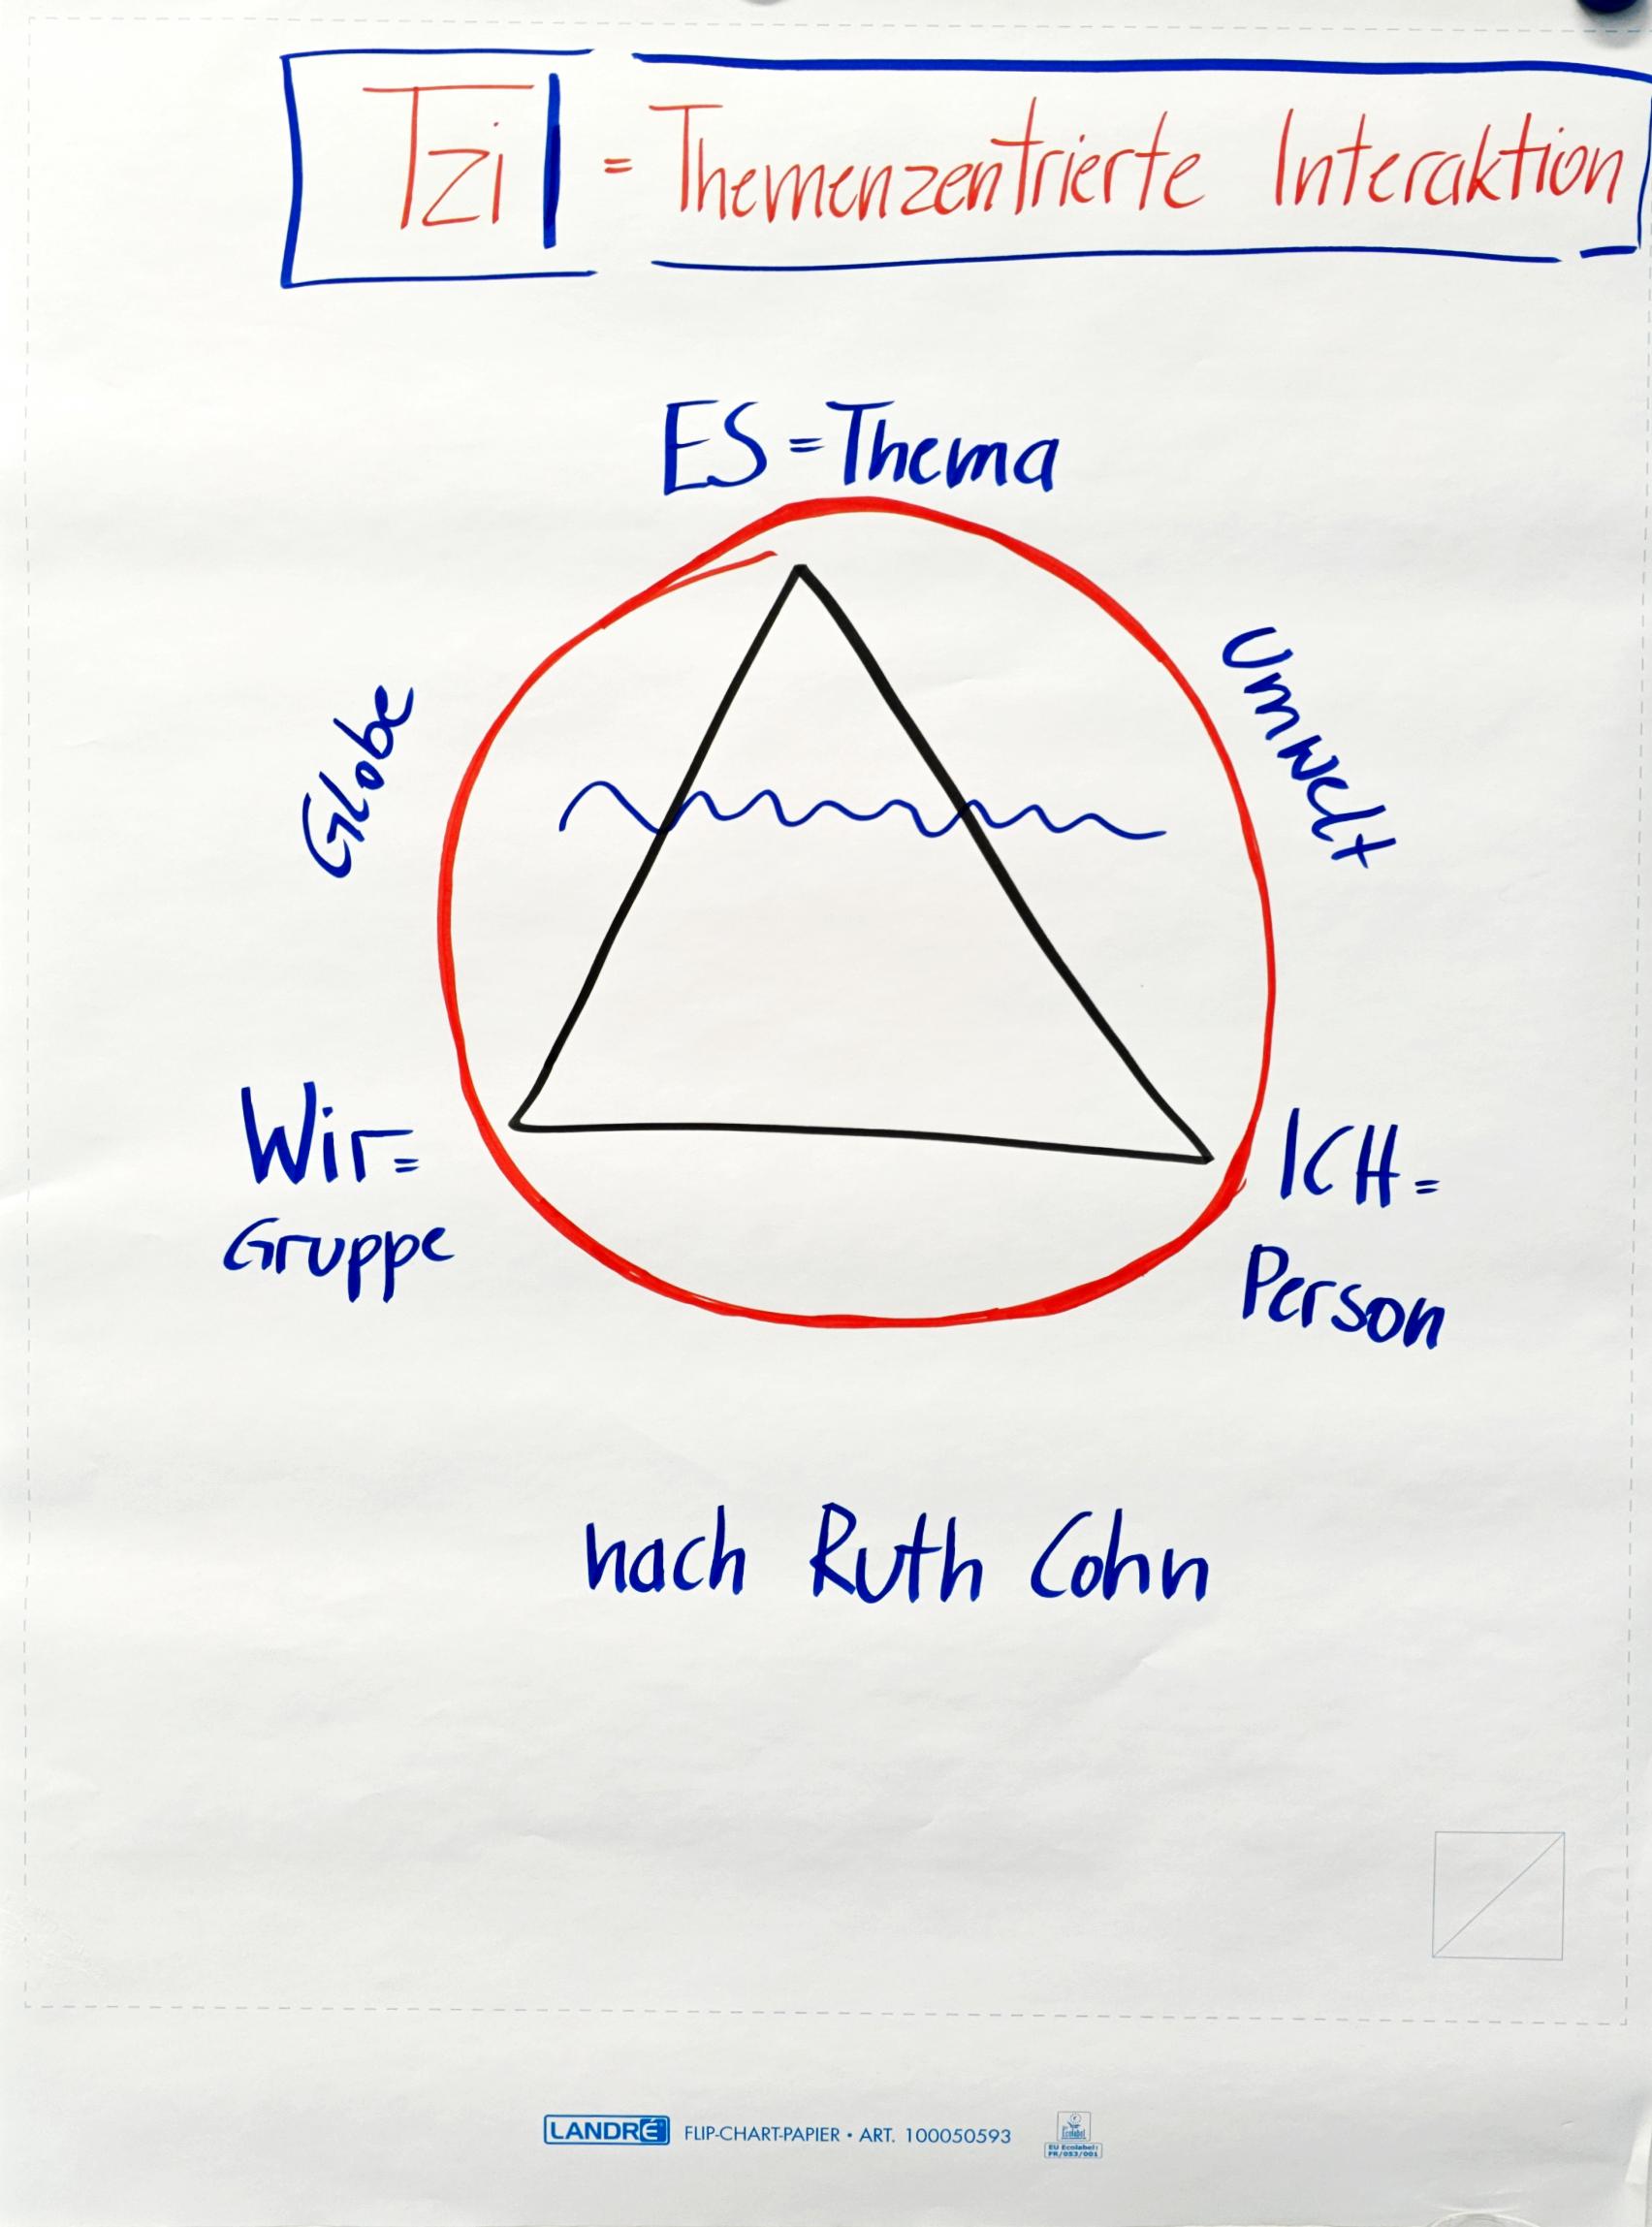 Tzi = Themenzentrierte Interaktion
ES = Thema
Globe
Umwelt
Wir =
Gruppe
ICH =
Person
nach Ruth Cohn
LANDRÉ FLIP-CHART-PAPIER • ART. 100050593
Ecolabel
EU Ecolabel:
FR/053/001